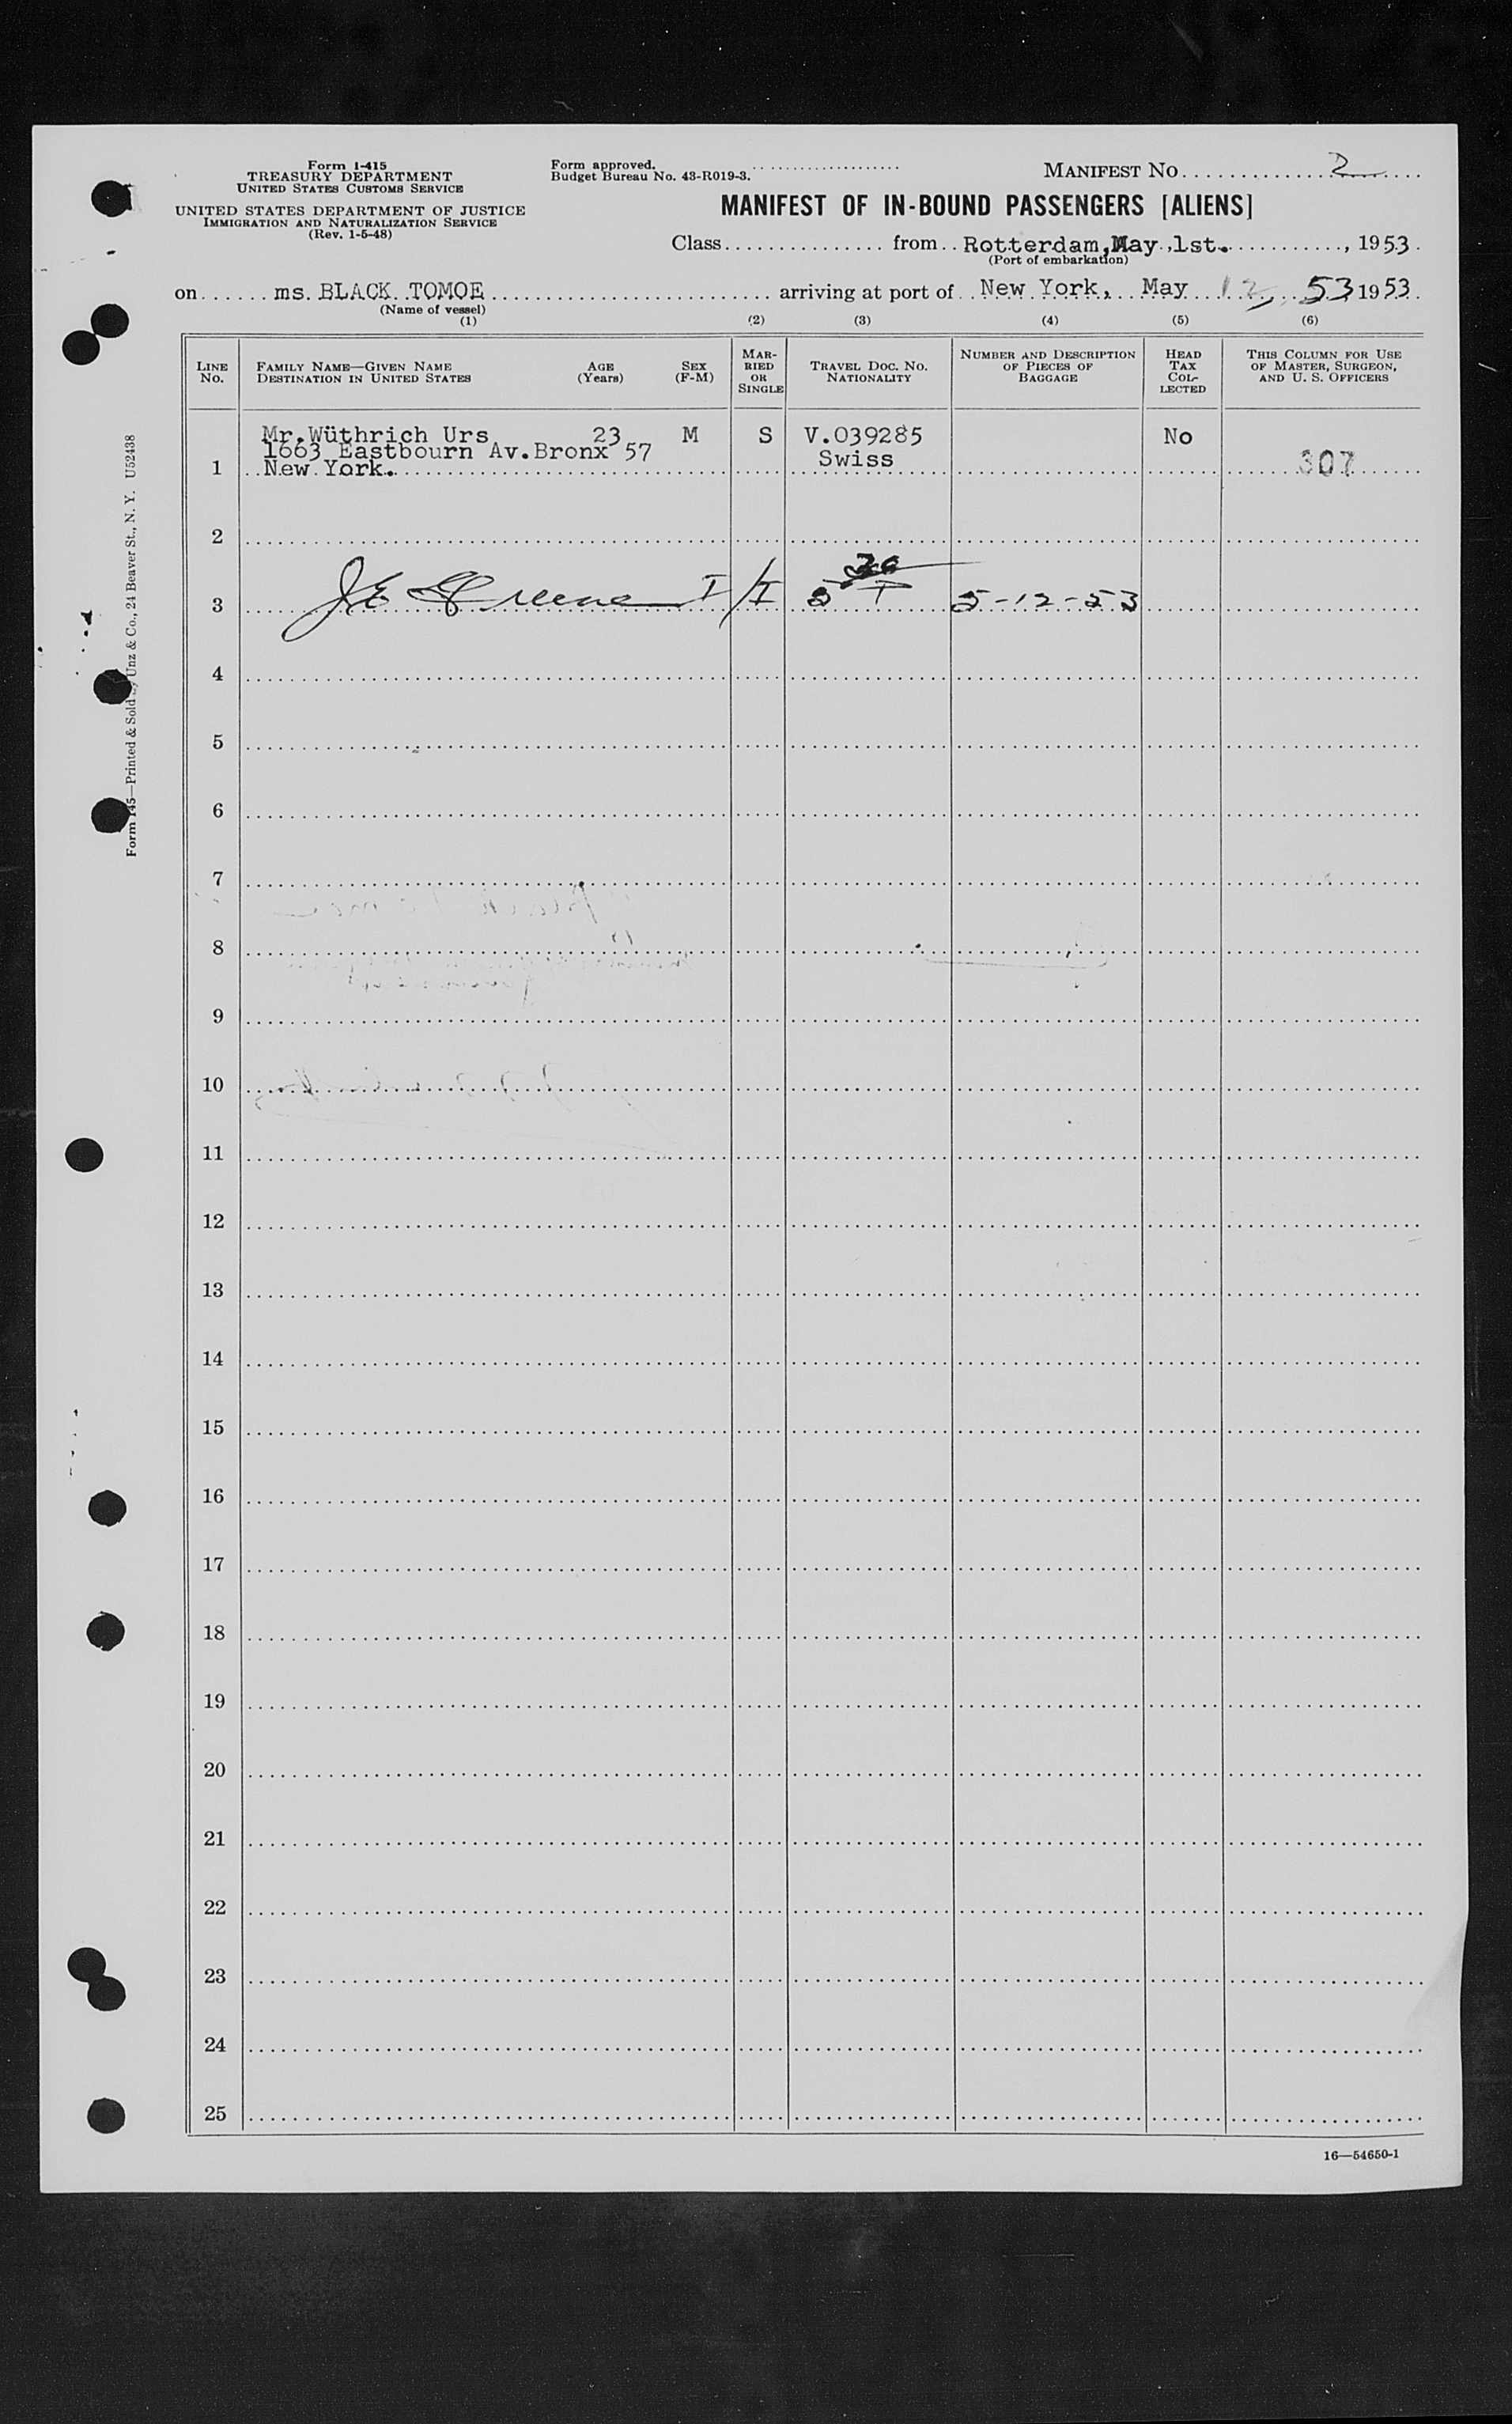 Form I-415
TREASURY DEPARTMENT
UNITED STATES CUSTOMS SERVICE
UNITED STATES DEPARTMENT OF JUSTICE
IMMIGRATION AND NATURALIZATION SERVICE
(Rev. 1-5-48)
Form approved.
Budget Bureau No. 43-R019-3.
MANIFEST NO. 2
MANIFEST OF IN-BOUND PASSENGERS [ALIENS]
Class from Rotterdam, May 1st. , 1953
(Port of embarkation)
on ms. BLACK TOMOE arriving at port of New York, May 12, 53 1953
(Name of vessel)
(1) (2) (3) (4) (5) (6)
LINE NO. FAMILY NAME—GIVEN NAME DESTINATION IN UNITED STATES AGE (Years) SEX (F-M) MARRIED OR SINGLE TRAVEL DOC. NO. NATIONALITY NUMBER AND DESCRIPTION OF PIECES OF BAGGAGE HEAD TAX COLLECTED THIS COLUMN FOR USE OF MASTER, SURGEON, AND U. S. OFFICERS
Mr. Wüthrich Urs 23 M S V.039285 No
1663 Eastbourn Av. Bronx 57 Swiss
1 New York. 307
2
3 JE Greene I/I 5-12-53
4
5
6
7
8
9
10
11
12
13
14
15
16
17
18
19
20
21
22
23
24
25
16—54650-1
Form 145—Printed & Sold by Unz & Co., 24 Beaver St., N. Y. U52438